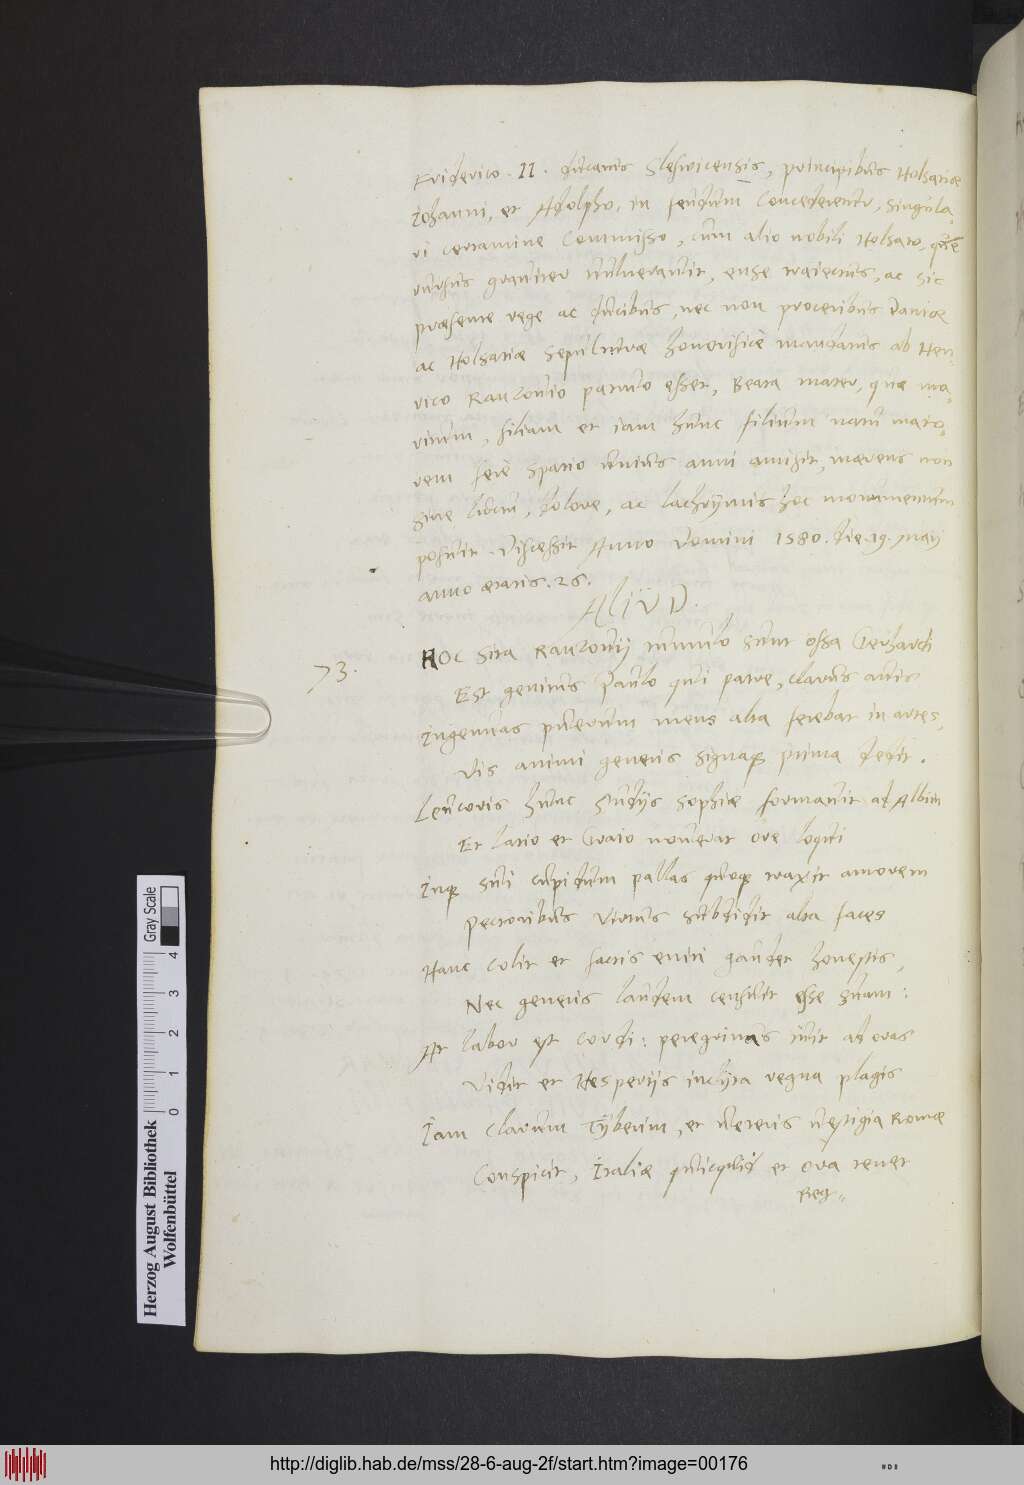 Friderico. II. ducatus Slesvicensis, principibus Holsatiae
Iohanni, et Adolpho, in feudum concederentur, singula-
ri certamine commisso, cum alio nobili Holsato, quem
rursus graviter vulneravit, ense traiectus, ac sic
praesente rege ac ducibus, nec non proceribus Daniae
ac Holsatiae sepulturae honorificè mandatus ab Hen-
rico Ranzouio patruo esset, Beata mater, quae ma-
ritum, filiam et iam hunc filium natu maio-
rem ferè spatio unius anni amisit, maerens non
sine luctu, dolore, ac lachrymis hoc monumentum
posuit. Discessit Anno Domini 1580. die. 19. Maij
anno aetatis. 26.
ALIUD.
73.
HOC sita Ranzouij tumulo sunt ossa Gerhardi
Est genitus Paulo qui patre, clarus avis
Ingenuas puerum mens alta ferebat in artes,
Vis animi generis signaque prima dedit.
Leucoris hunc studijs sophiae formavit ad Albim
Et latio et Graio noverat ore loqui
Inque sui cupidum pallas quoque traxit amorem
Pectoribus virtus subdidit alta faces
Hanc colit et factis eniti gaudet honestis,
Nec generis laudem censuit esse suam:
At labor est cordi: peregrinas ivit ad oras
Vidit et Hesperijs inclyta regna plagis
Iam clarum Tyberim, et veteris vestigia Romae
Conspicit, Italiae quicquid et ora tenet
Reg-
Herzog August Bibliothek
Wolfenbüttel
0 1 2 3 4
Gray Scale
http://diglib.hab.de/mss/28-6-aug-2f/start.htm?image=00176